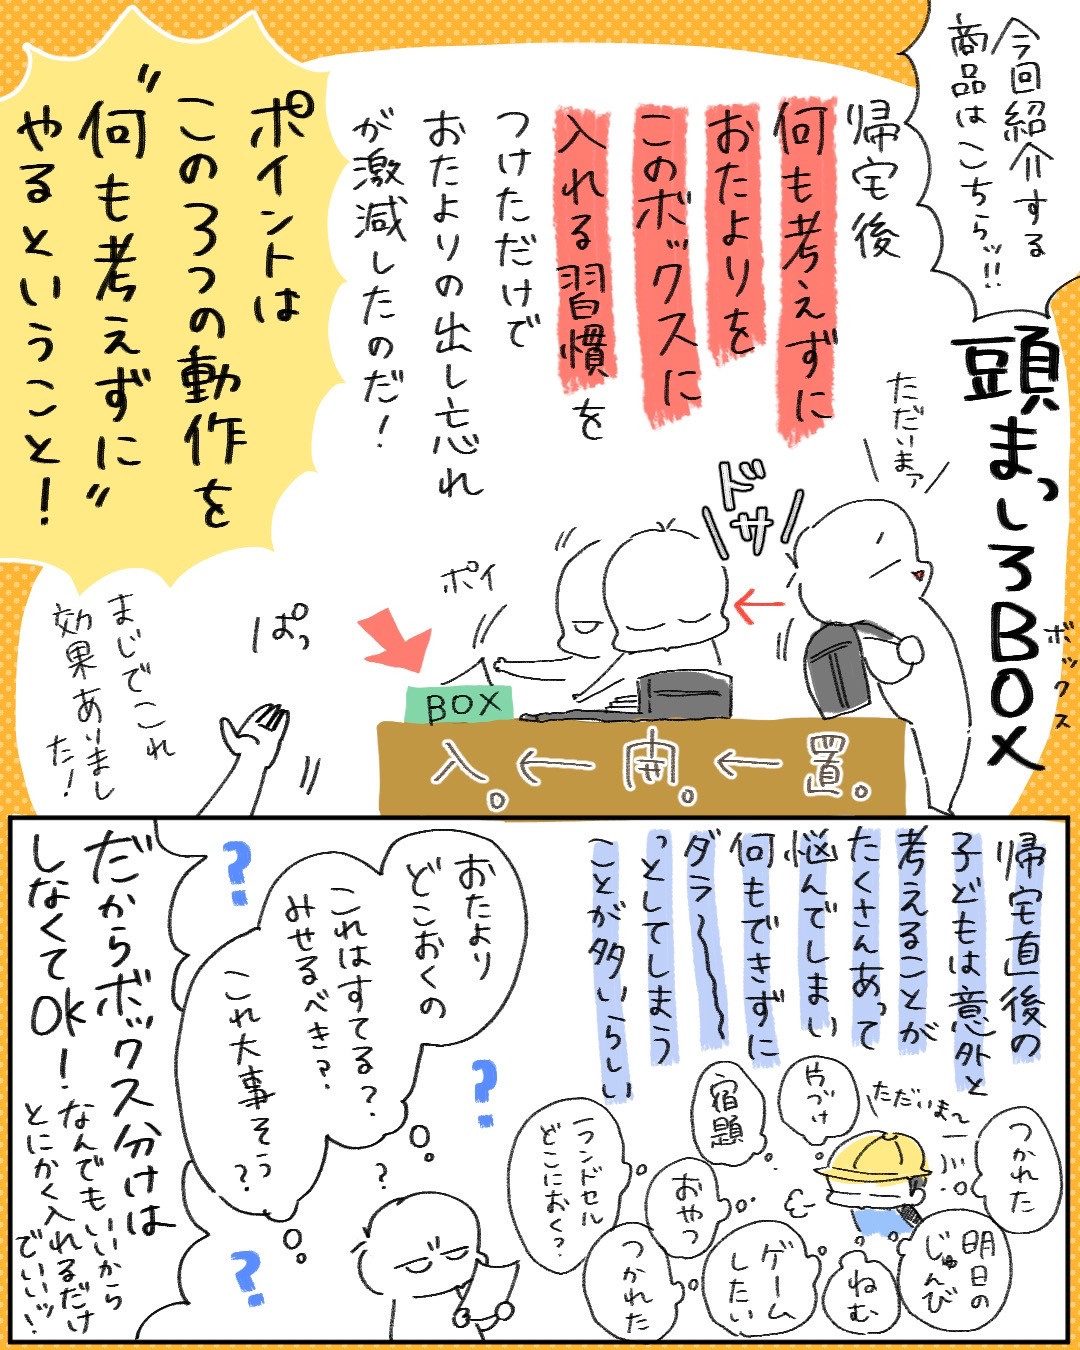 今回紹介する
商品はこちらッ!!
頭まっしろBOX
ボックス
帰宅後
何も考えずに
おたよりを
このボックスに
入れる習慣を
つけただけで
おたよりの出し忘れ
が激減したのだ!
ポイントは
この3つの動作を
"何も考えずに"
やるということ!
ただいまァ
ドサ
ポイ
ぱっ
まじでこれ
効果ありまし
た!
BOX
置。←開。←入。
帰宅直後の
子どもは意外と
考えることが
たくさんあって
悩んでしまい
何もできずに
ダラ〜
っとしてしまう
ことが多いらしい
ただいま〜
つかれた
片づけ
宿題
明日の
じゅんび
おやつ
ランドセル
どこにおく?
ねむ
ゲーム
したい
つかれた
おたより
どこおくの
これはすてる?
みせるべき?
これ大事そう
?
?
?
?
?
だからボックス分けは
しなくてOK!
なんでもいいから
とにかく入れるだけ
でいいッ!